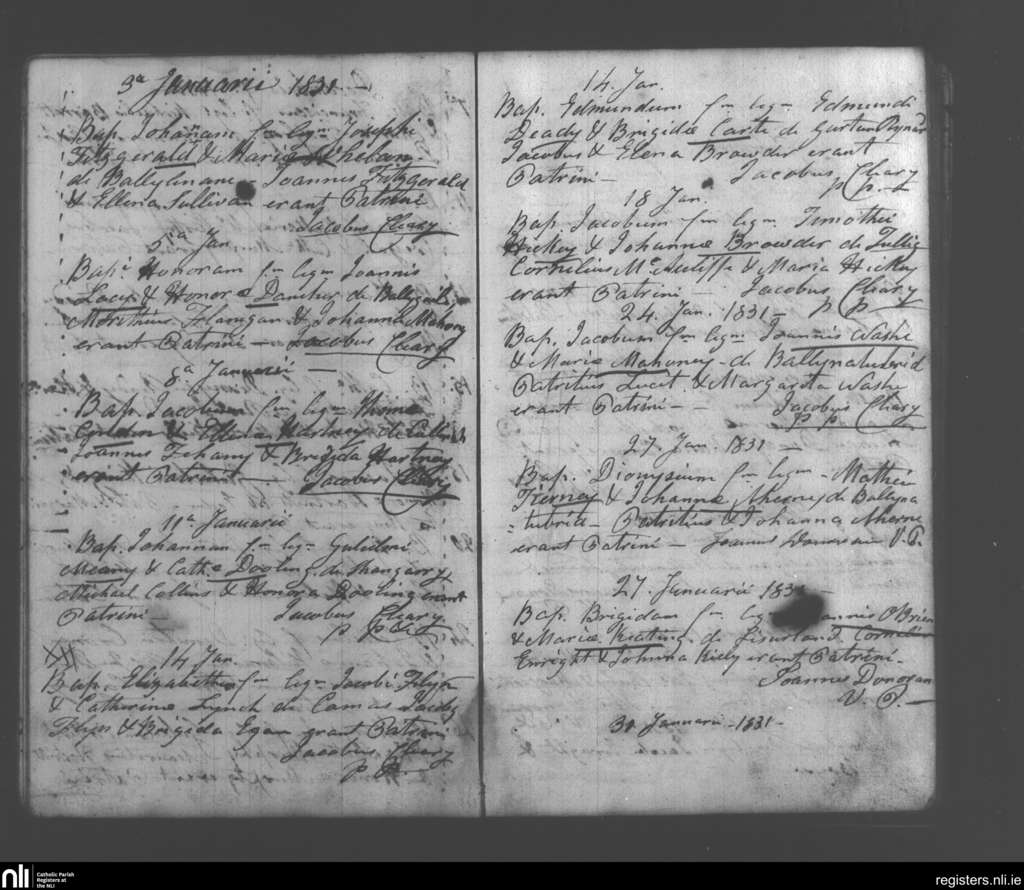 3a Januarii 1831 —
Bap. Johanam fm ligm Josephi
Fitzgerald & Mariæ Shehan
di Ballylinane Joannes Fitzgerald
& Ellena Sullivan erant Patrini
Jacobus Cleary
5a Jan.
Bap. Honoram fm ligm Joannis
Lacy & Honoræ Danaher di
Flanigan & Johanna Mahony
erant Patrini — Jacobus Cleary
8a Januarii —
Bap. Jacobum fm ligm Thomæ
& Ellenæ Hartney di
Joannes Fehany & Brigida Hartney
erant Patrini — Jacobus Cleary
11a Januarii
Bap. Johannan fm ligm Gulielmi
Meany & Cathæ Dooling di Shangarry
Michael Collins & Honora Dooling erant
Patrini Jacobus Cleary
P P
14 Jan.
Bap. Elizabetham fm ligm Jacobi Flyn
& Catherinæ Lynch di Camas
Flyn & Brigida Egan erant Patrini
Jacobus Cleary
P P
14. Jan.
Bap. Edmundum fm ligm Edmundi
Deady & Brigidæ Carte di Gurtun
Jacobus & Elena Browder erant
Patrini — Jacobus Cleary
P P.
18 Jan.
Bap. Jacobum fm ligm Timothei
Hickey & Johannæ Browder di Tullig
Cornelius McAuliffe & Maria Hickey
erant Patrini — Jacobus Cleary
24. Jan. 1831 — P P —
Bap. Jacobum fm ligm Joannis Washe
& Mariæ Mahoney di
Patritius Lucit & Margarita Washe
erant Patrini — Jacobus Cleary
P P.
27 Jan. 1831 —
Bap. Dionysium fm ligm Mathei
Tierney & Johannæ Aherne di Ballyna
=tubrid — Patritius & Johanna Aherne
erant Patrini — Joannes Donovan V. P.
27. Januarii 1831 —
Bap. Brigidam fm lig Joannis O'Brien
& Mariæ Keating di Lisurland Cornelius
Enright & Johana Kiely erant Patrini —
Joannes Donovan
V. P. —
31 Januarii — 1831 —
nli
Catholic Parish
Registers at
the NLI
registers.nli.ie